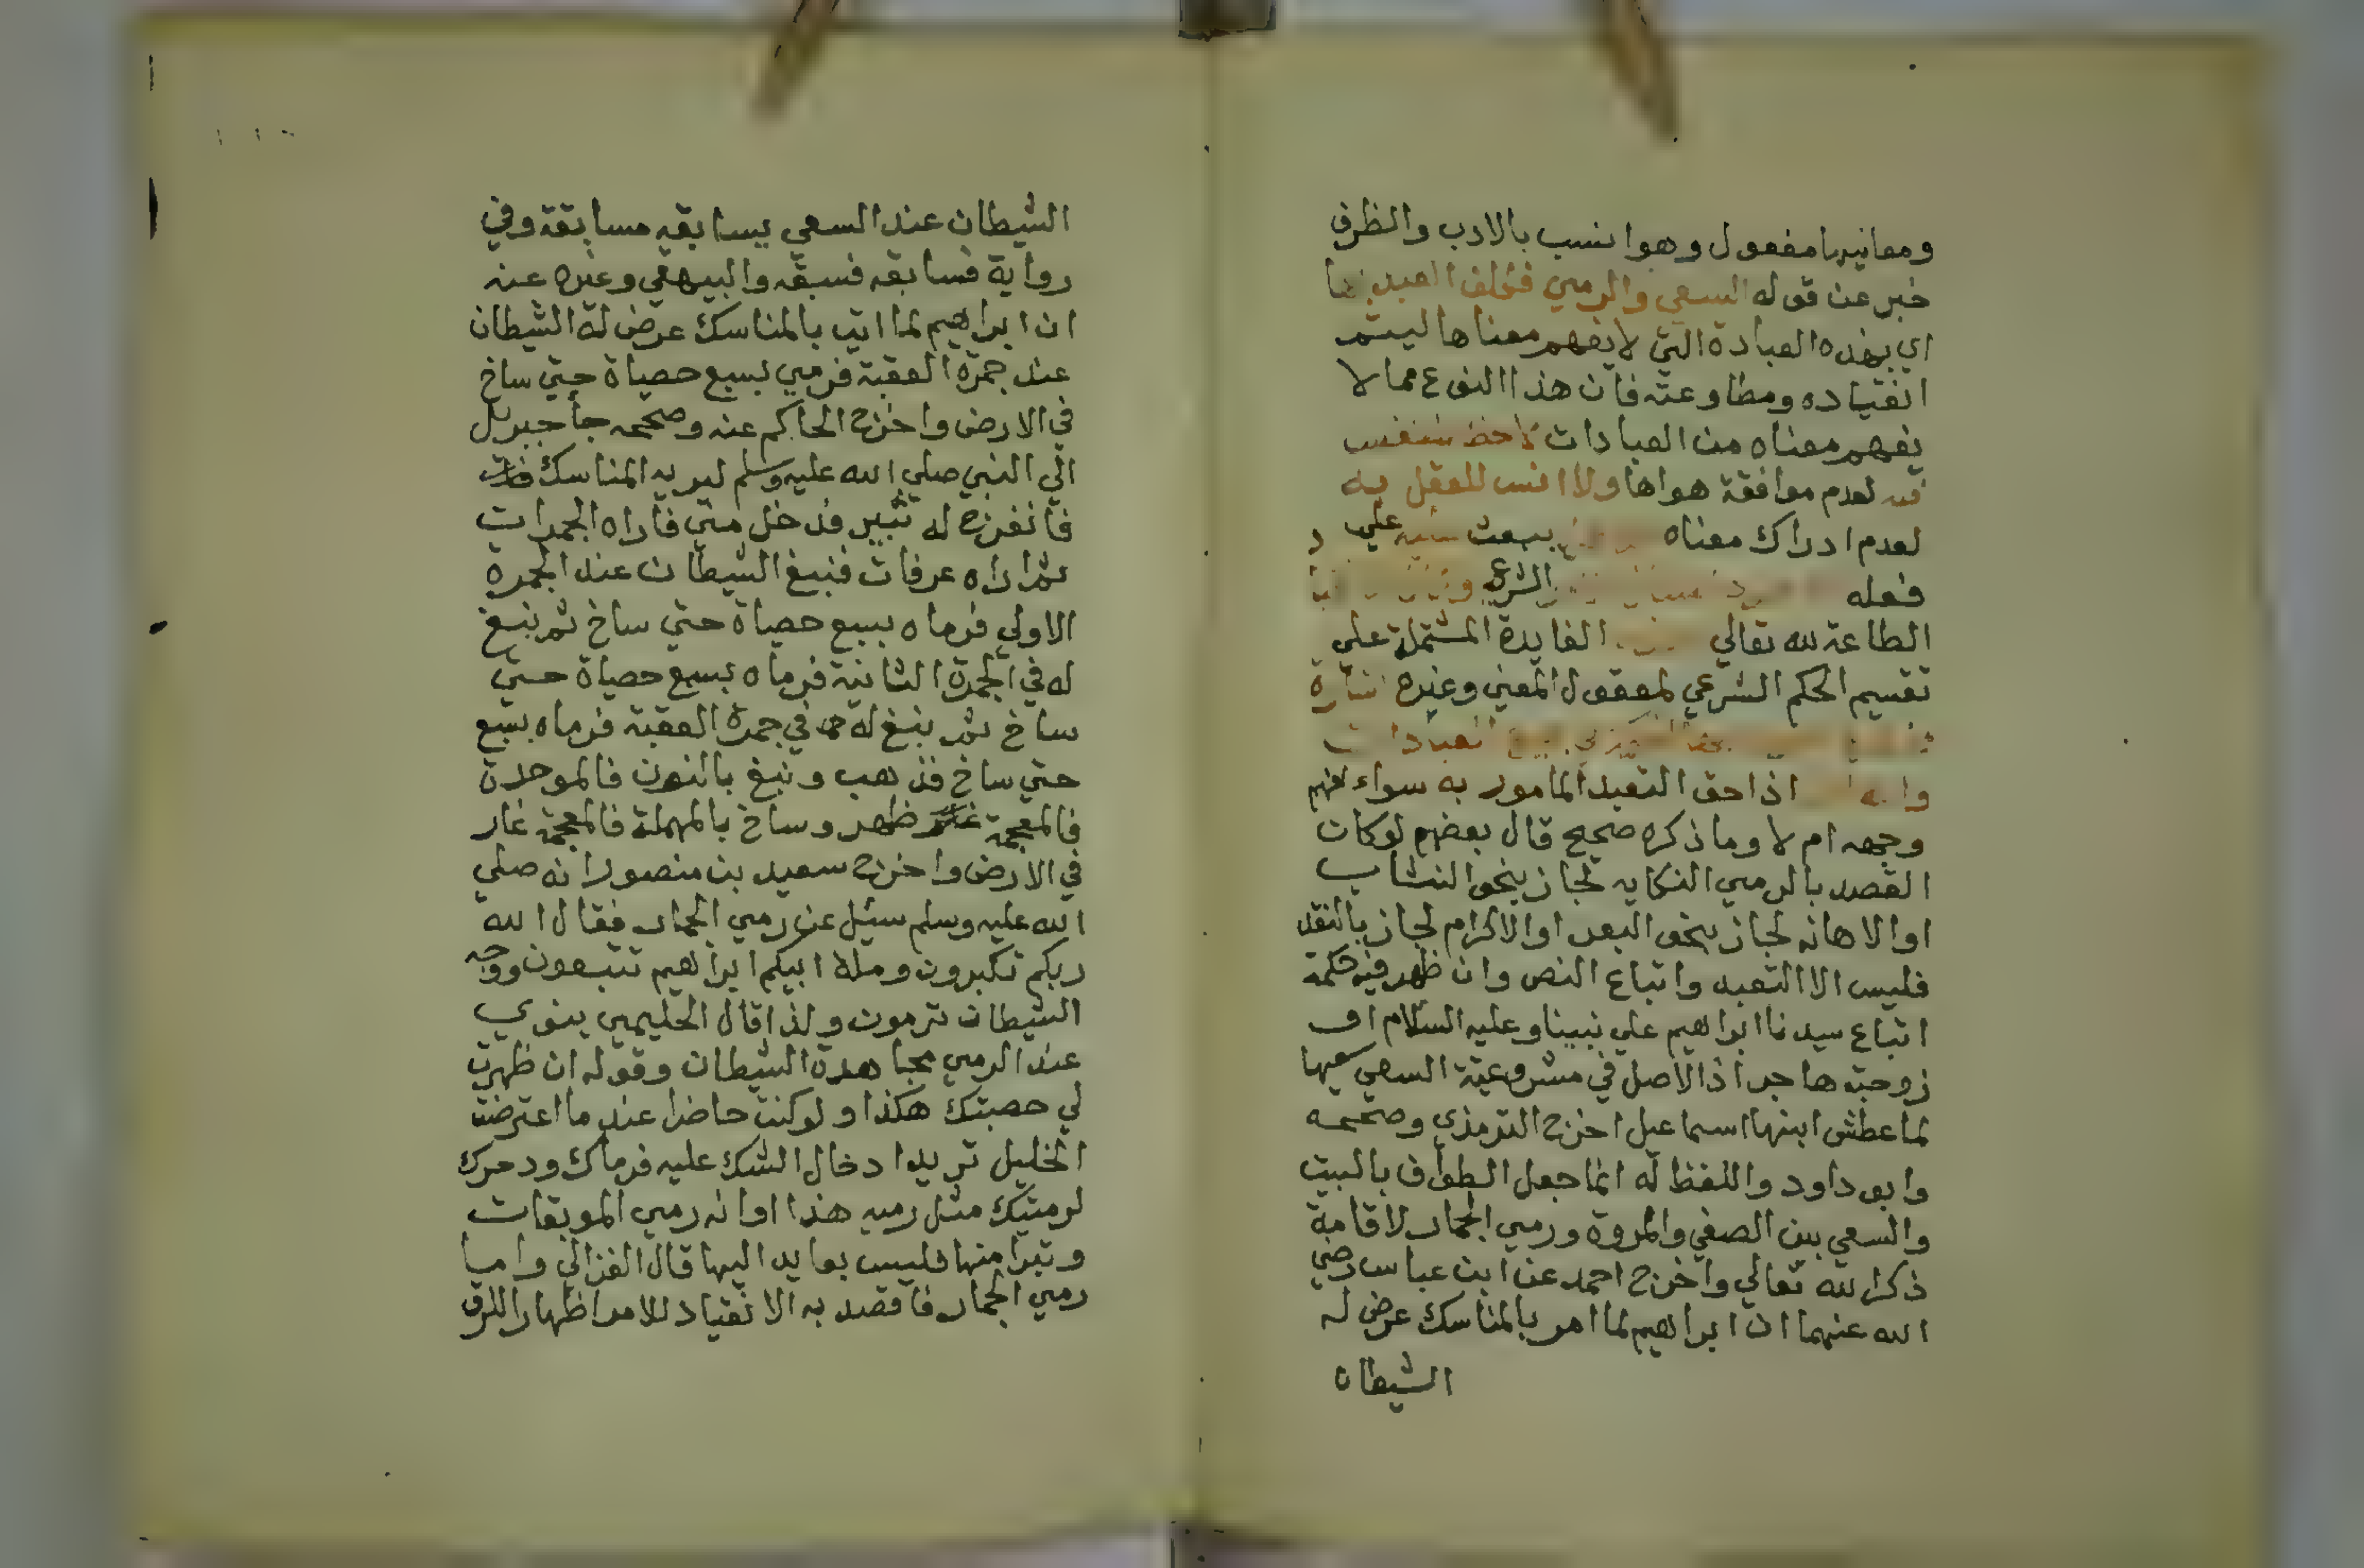 ومعانيها مفعول وهو انسب بالادب والظرف
خبر عن قوله السعي والرمي فكلف العبد بهما
اي بهذه العبادة التي لا يفهم معناها ليتم
انقياده ومطاوعته فان هذا النوع مما لا
يفهم معناه من العبادات لاحظ للنفس
فيه لعدم موافقة هواها ولا انس للعقل به
لعدم ادراك معناه يبعث علي
فعله الشرع
الطاعة لله تعالي الفايدة المشتملة علي
تقسيم الحكم الشرعي لمعقول المعني وغيره اشارة
العبادات
اذا حق التعبد المامور به سواء فهم
وجهه ام لا وما ذكره صحيح قال بعضهم لو كان
القصد بالرمي النكايه لجاز بنحو النشاب
او الاهانه لجاز بنحو البعر او الاكرام لجاز بالنقد
فليس الا التعبد واتباع النص وان ظهر فيه حكمة
اتباع سيدنا ابراهيم علي نبينا وعليه السلام او
زوجته هاجر اذ الاصل في مشروعية السعي سعيها
لما عطش ابنها اسماعيل اخرج الترمذي وصححه
وابو داود واللفظ له انما جعل الطواف بالبيت
والسعي بين الصفي والمروة ورمي الجمار لاقامة
ذكر الله تعالي واخرج احمد عن ابن عباس رضي
الله عنهما ان ابراهيم لما امر بالمناسك عرض له
الشيطان
الشيطان عند السعي يسابقه مسابقة وفي
رواية فسابقه فسبقه والبيهقي وغيره عنه
ان ابراهيم لما اتي بالمناسك عرض له الشيطان
عند جمرة العقبة فرمي بسبع حصياة حتي ساخ
في الارض واخرج الحاكم عنه وصححه جأ جبريل
الي النبي صلي الله عليه وسلم ليريه المناسك
فانفرج له ثبير فدخل مني فاراه الجمرات
ثم اراه عرفات فنبغ الشيطان عند الجمرة
الاولي فرماه بسبع حصياة حتي ساخ ثم نبغ
له في الجمرة الثانية فرماه بسبع حصياة حتي
ساخ ثم نبغ له في جمرة العقبة فرماه بسبع
حتي ساخ فذهب ونبغ بالنون فالموحدة
فالمعجمة ظهر وساخ بالمهملة فالمعجمة غار
في الارض واخرج سعيد بن منصور انه صلي
الله عليه وسلم سئل عن رمي الجمار فقال الله
ربكم تكبرون وملة ابيكم ابراهيم تتبعون ووجه
الشيطان ترمون ولذا قال الحليمي ينوي
عند الرمي مجاهدة الشيطان وقوله ان ظهرت
لي حصبتك هكذا ولو كنت حاضرا عند ما اعترضت
الخليل تريد ادخال الشك عليه فرماك ودحرك
لرميتك مثل رميه هذا او انه رمي الموبقات
وتبرا منها فليس بعايد اليها قال الغزالي واما
رمي الجمار فاقصد به الانقياد للامر اظهارا للرق